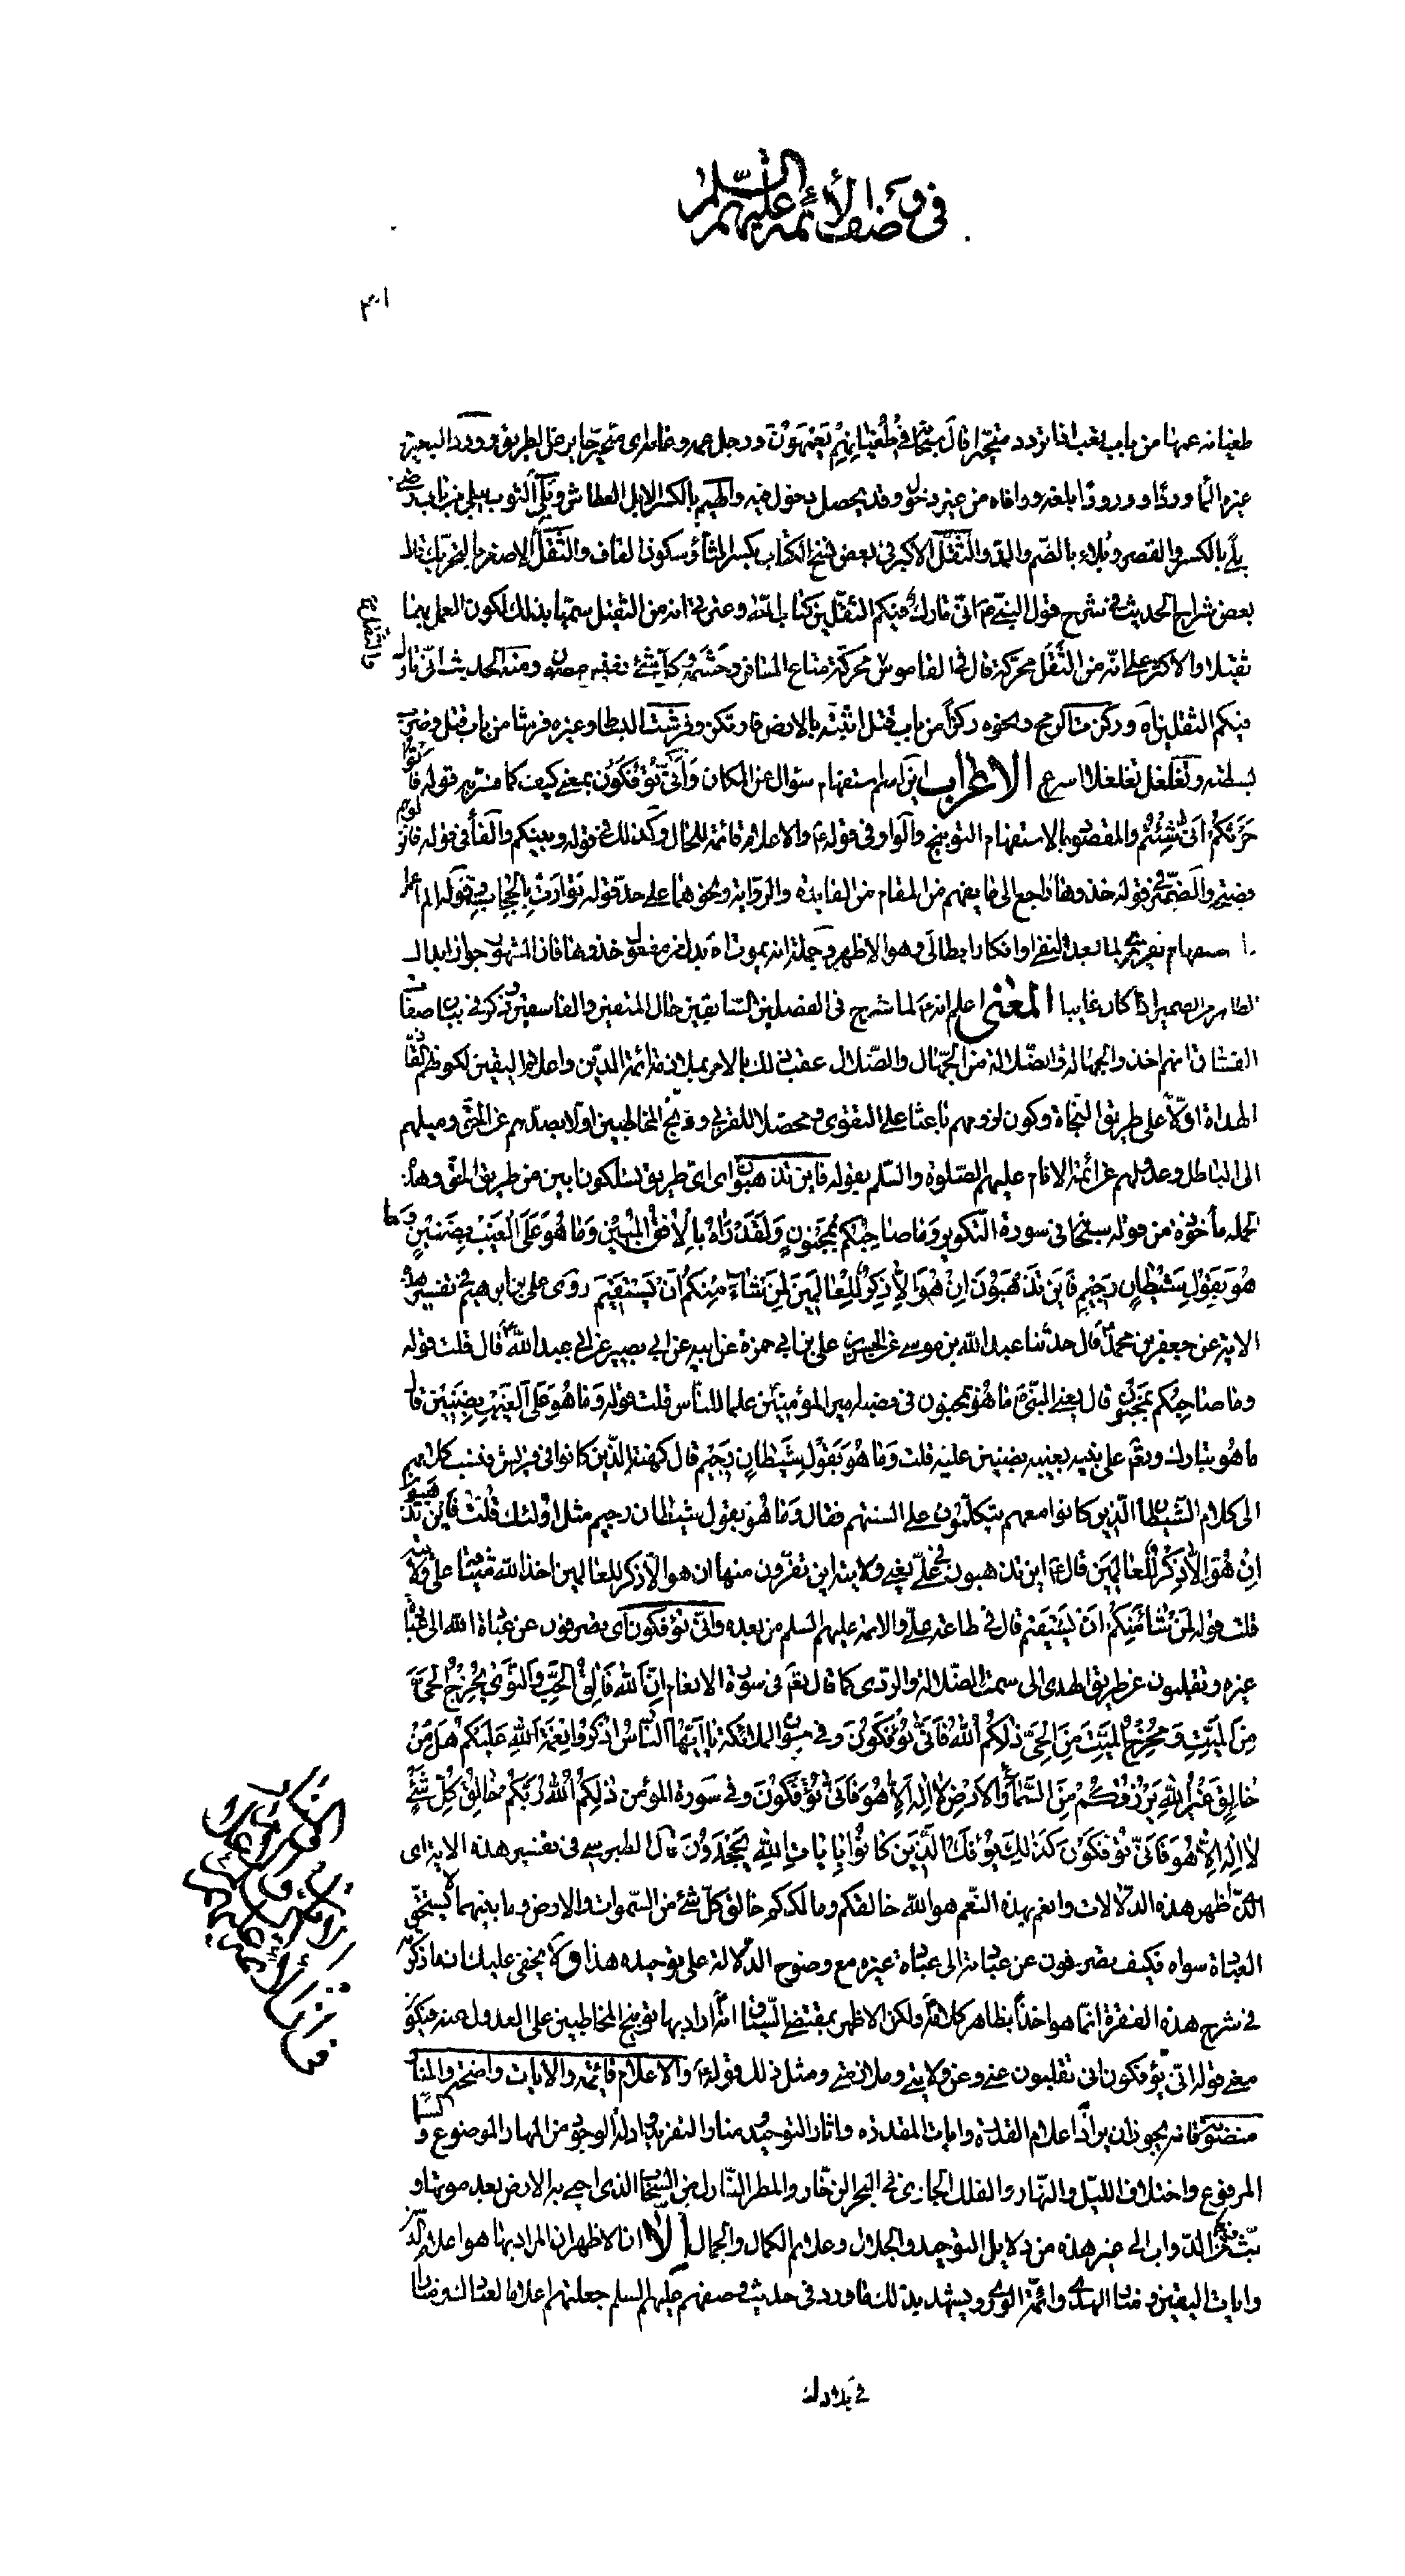 فى وصف الأئمة عليهم السلام
٣٠١
طغيانه عمها من باب تعب اذا تردد متحيّرا قال سبحانه فى طُغْيٰانِهِمْ يَعْمَهُونَ ورجل عمه وعامه اى متحيّر حاير عن الطريق وورد البعير
غيره الماء وردا وورودا بلغه ووافاه من غير دخول وقد يحصل دخول فيه والهيم بالكسر الابل العطاش وبَلى الثوب يبلى من باب رضى
بلى بالكسر والقصر وبلاء بالضم والمدّ والثقل الأكبر فى بعض نسخ الكتاب بكسر المثلثة وسكون القاف والثقل الاصغر بالتحريك قال
بعض شراح الحديث فى شرح قول النبى ص انّى تارك فيكم الثقلين كتاب اللّه وعترتى انه من الثقيل سمّيا بذلك لكون العمل بهما
ثقيلا والاكثر على انّه من الثَّقَل محرّكة قال فى القاموس محركة متاع المسافر وحشمه وكل شىء نفيس مصون ومنه الحديث انّى تارك
فيكم الثقلين اه وركزت الرمح ونحوه ركزاً من باب قتل اثبتّه بالارض فارتكز وفرشت البساط وغيره فرشا من باب قتل وضرب
بسطته وتغلغل تغلغلا اسرع الاعراب اين اسم استفهام سؤال عن المكان وأنّى تُؤْفَكُونَ بمعنى كيف كما فسّر به قوله فأتوا
حَرْثَكُمْ أَنّٰى شِئْتُمْ والمقصود بالاستفهام التوبيخ والواو فى قوله والاعلام قائمة للحال وكذلك فى قوله وبينكم والفاء فى قوله فانزلوهم
فصيحة والضمير فى قوله خذوها راجع الى ما يفهم من المقام من الفايدة والرواية ونحوهما على حدّ قوله تَوٰارَتْ بِالْحِجٰابِ وقوله الم اعمل
استفهام تقريرى لما بعد النفى او انكار ابطالى وهو الاظهر وجملة انه يموت اه بدل من مفعول خذوها فان المشهور جواز ابدال
الظاهر من الضمير اذا كان غايبا المعنى اعلم انه ع لما شرح فى الفصلين السابقين حال المتقين والفاسقين وذكر فى بيان صفات
الفساق انهم اخذوا الجهالة والضلالة من الجهّال والضلال عقب ذلك بالامر بملازمة ائمة الدّين واعلام اليقين لكونهم القادة
الهداة ادلّاء على طريق النجاة وكون لزومهم باعثا على التقوى ومحصّلا للقربى ووبّخ المخاطبين اولا بصدّهم عن الحقّ وميلهم
الى الباطل وعدولهم عن ائمة الانام عليهم الصّلوة والسّلم بقوله فاين تذهبون اى اىّ طريق تسلكون ابين من طريق الحقّ وهذه
الجملة مأخوذة من قوله سبحانه فى سورة التكوير وَمٰا صٰاحِبُكُمْ بِمَجْنُونٍ وَلَقَدْ رَآهُ بِالْأُفُقِ الْمُبِينِ وَمٰا هُوَ عَلَى الْغَيْبِ بِضَنِينٍ وَمٰا
هُوَ بِقَوْلِ شَيْطٰانٍ رَجِيمٍ فَأَيْنَ تَذْهَبُونَ إِنْ هُوَ إِلّٰا ذِكْرٌ لِلْعٰالَمِينَ لِمَنْ شٰاءَ مِنْكُمْ أَنْ يَسْتَقِيمَ روى على بن ابرهيم فى تفسير هذه
الاية عن جعفر بن محمد قال حدّثنا عبد اللّه بن موسى عن الحسن بن على بن ابى حمزة عن ابيه عن ابى بصير عن ابى عبد اللّه ع قال قلت قوله
وما صاحبكم بمجنون قال يعنى النبى ص ما هو بمجنون فى نصبه امير المؤمنين علما للناس قلت قوله وَمٰا هُوَ عَلَى الْغَيْبِ بِضَنِينٍ قال
ما هو تبارك وتعالى على نبيه بغيبه بضنين عليه قلت وَمٰا هُوَ بِقَوْلِ شَيْطٰانٍ رَجِيمٍ قال كهنة الّذين كانوا فى قريش فنسب كلامهم
الى كلام الشيطان الّذين كانوا معهم يتكلّمون على السنتهم فقال وما هو بقول شيطان رجيم مثل اولئك قلت فأين تذهبون
إِنْ هُوَ إِلّٰا ذِكْرٌ لِلْعٰالَمِينَ قال اين تذهبون فى علىّ يعنى ولايته اين تفرّون منها ان هو الّا ذكر للعالمين اخذ اللّه ميثاقه على ولايته
قلت قوله لِمَنْ شٰاءَ مِنْكُمْ أَنْ يَسْتَقِيمَ قال فى طاعة علىّ والائمة عليهم السلم من بعده وانّى تؤفكون اى تصرفون عن عبادة اللّه الى عبادة
غيره وتقلبون عن طريق الهدى الى سمت الضّلالة والرّدى كما قال تعالى فى سورة الانعام إِنَّ اللّٰهَ فٰالِقُ الْحَبِّ وَالنَّوىٰ يُخْرِجُ الْحَيَّ
مِنَ الْمَيِّتِ وَمُخْرِجُ الْمَيِّتِ مِنَ الْحَيِّ ذٰلِكُمُ اللّٰهُ فَأَنّٰى تُؤْفَكُونَ وفى سورة الملائكة يٰا أَيُّهَا النّٰاسُ اذْكُرُوا نِعْمَةَ اللّٰهِ عَلَيْكُمْ هَلْ مِنْ
خٰالِقٍ غَيْرُ اللّٰهِ يَرْزُقُكُمْ مِنَ السَّمٰاءِ وَالْأَرْضِ لٰا إِلٰهَ إِلّٰا هُوَ فَأَنّٰى تُؤْفَكُونَ وفى سورة المؤمن ذٰلِكُمُ اللّٰهُ رَبُّكُمْ خٰالِقُ كُلِّ شَيْءٍ
لٰا إِلٰهَ إِلّٰا هُوَ فَأَنّٰى تُؤْفَكُونَ كَذٰلِكَ يُؤْفَكُ الَّذِينَ كٰانُوا بِآيٰاتِ اللّٰهِ يَجْحَدُونَ قال الطبرسى فى تفسير هذه الاية اى
الذى اظهر هذه الدّلالات وانعم بهذه النّعم هو اللّه خالقكم ومالككم خالق كلّ شىء من السّموات والارض وما بينهما لا يستحقّ
العبادة سواه فكيف تصرفون عن عبادته الى عبادة غيره مع وضوح الدلالة على توحيده هذا ولا يخفى عليك ان ما ذكرته
فى شرح هذه الفقرة انما هو اخذاً بظاهر كلامه ولكن الاظهر بمقتضى السياق انه اراد بها توبيخ المخاطبين على العدول عنه فيكون
معنى قوله انّى تؤفكون انّى تقلبون عنّى وعن ولايتى وملازمتى ومثل ذلك قوله والاعلام قائمة والايات واضحة والمنار
منصوبة فانه يجوز ان يراد اعلام القدرة وايات المقدرة واثار التوحيد ومنار التفريد وادلّة الوجود من المهاد الموضوع والسماء
المرفوع واختلاف الليل والنّهار والفلك الجارى فى البحر الزخّار والمطر النّازل من السّحاب الذى احيى به الارض بعد موتها و
بثّ فيها من الدّواب الى غير هذه من دلايل التوحيد والجلال وعلائم الكمال والجمال إلّا ان الاظهر ان المراد بها هو اعلام الدّين
وايات اليقين ومنار الهدى وائمّة الورى ويشهد بذلك ما ورد فى حديث وصفهم عليهم السلم جعلتهم اعلاما لعبادك ومنارا
فى بلادك